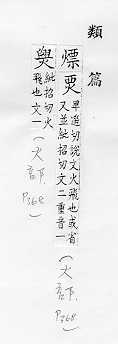 類篇
熛
卑遥切說文火飛也或省
又並紕招切文二重音一
(火部 P368.)
紕招切火
飛也文一
(火部 P.368.)